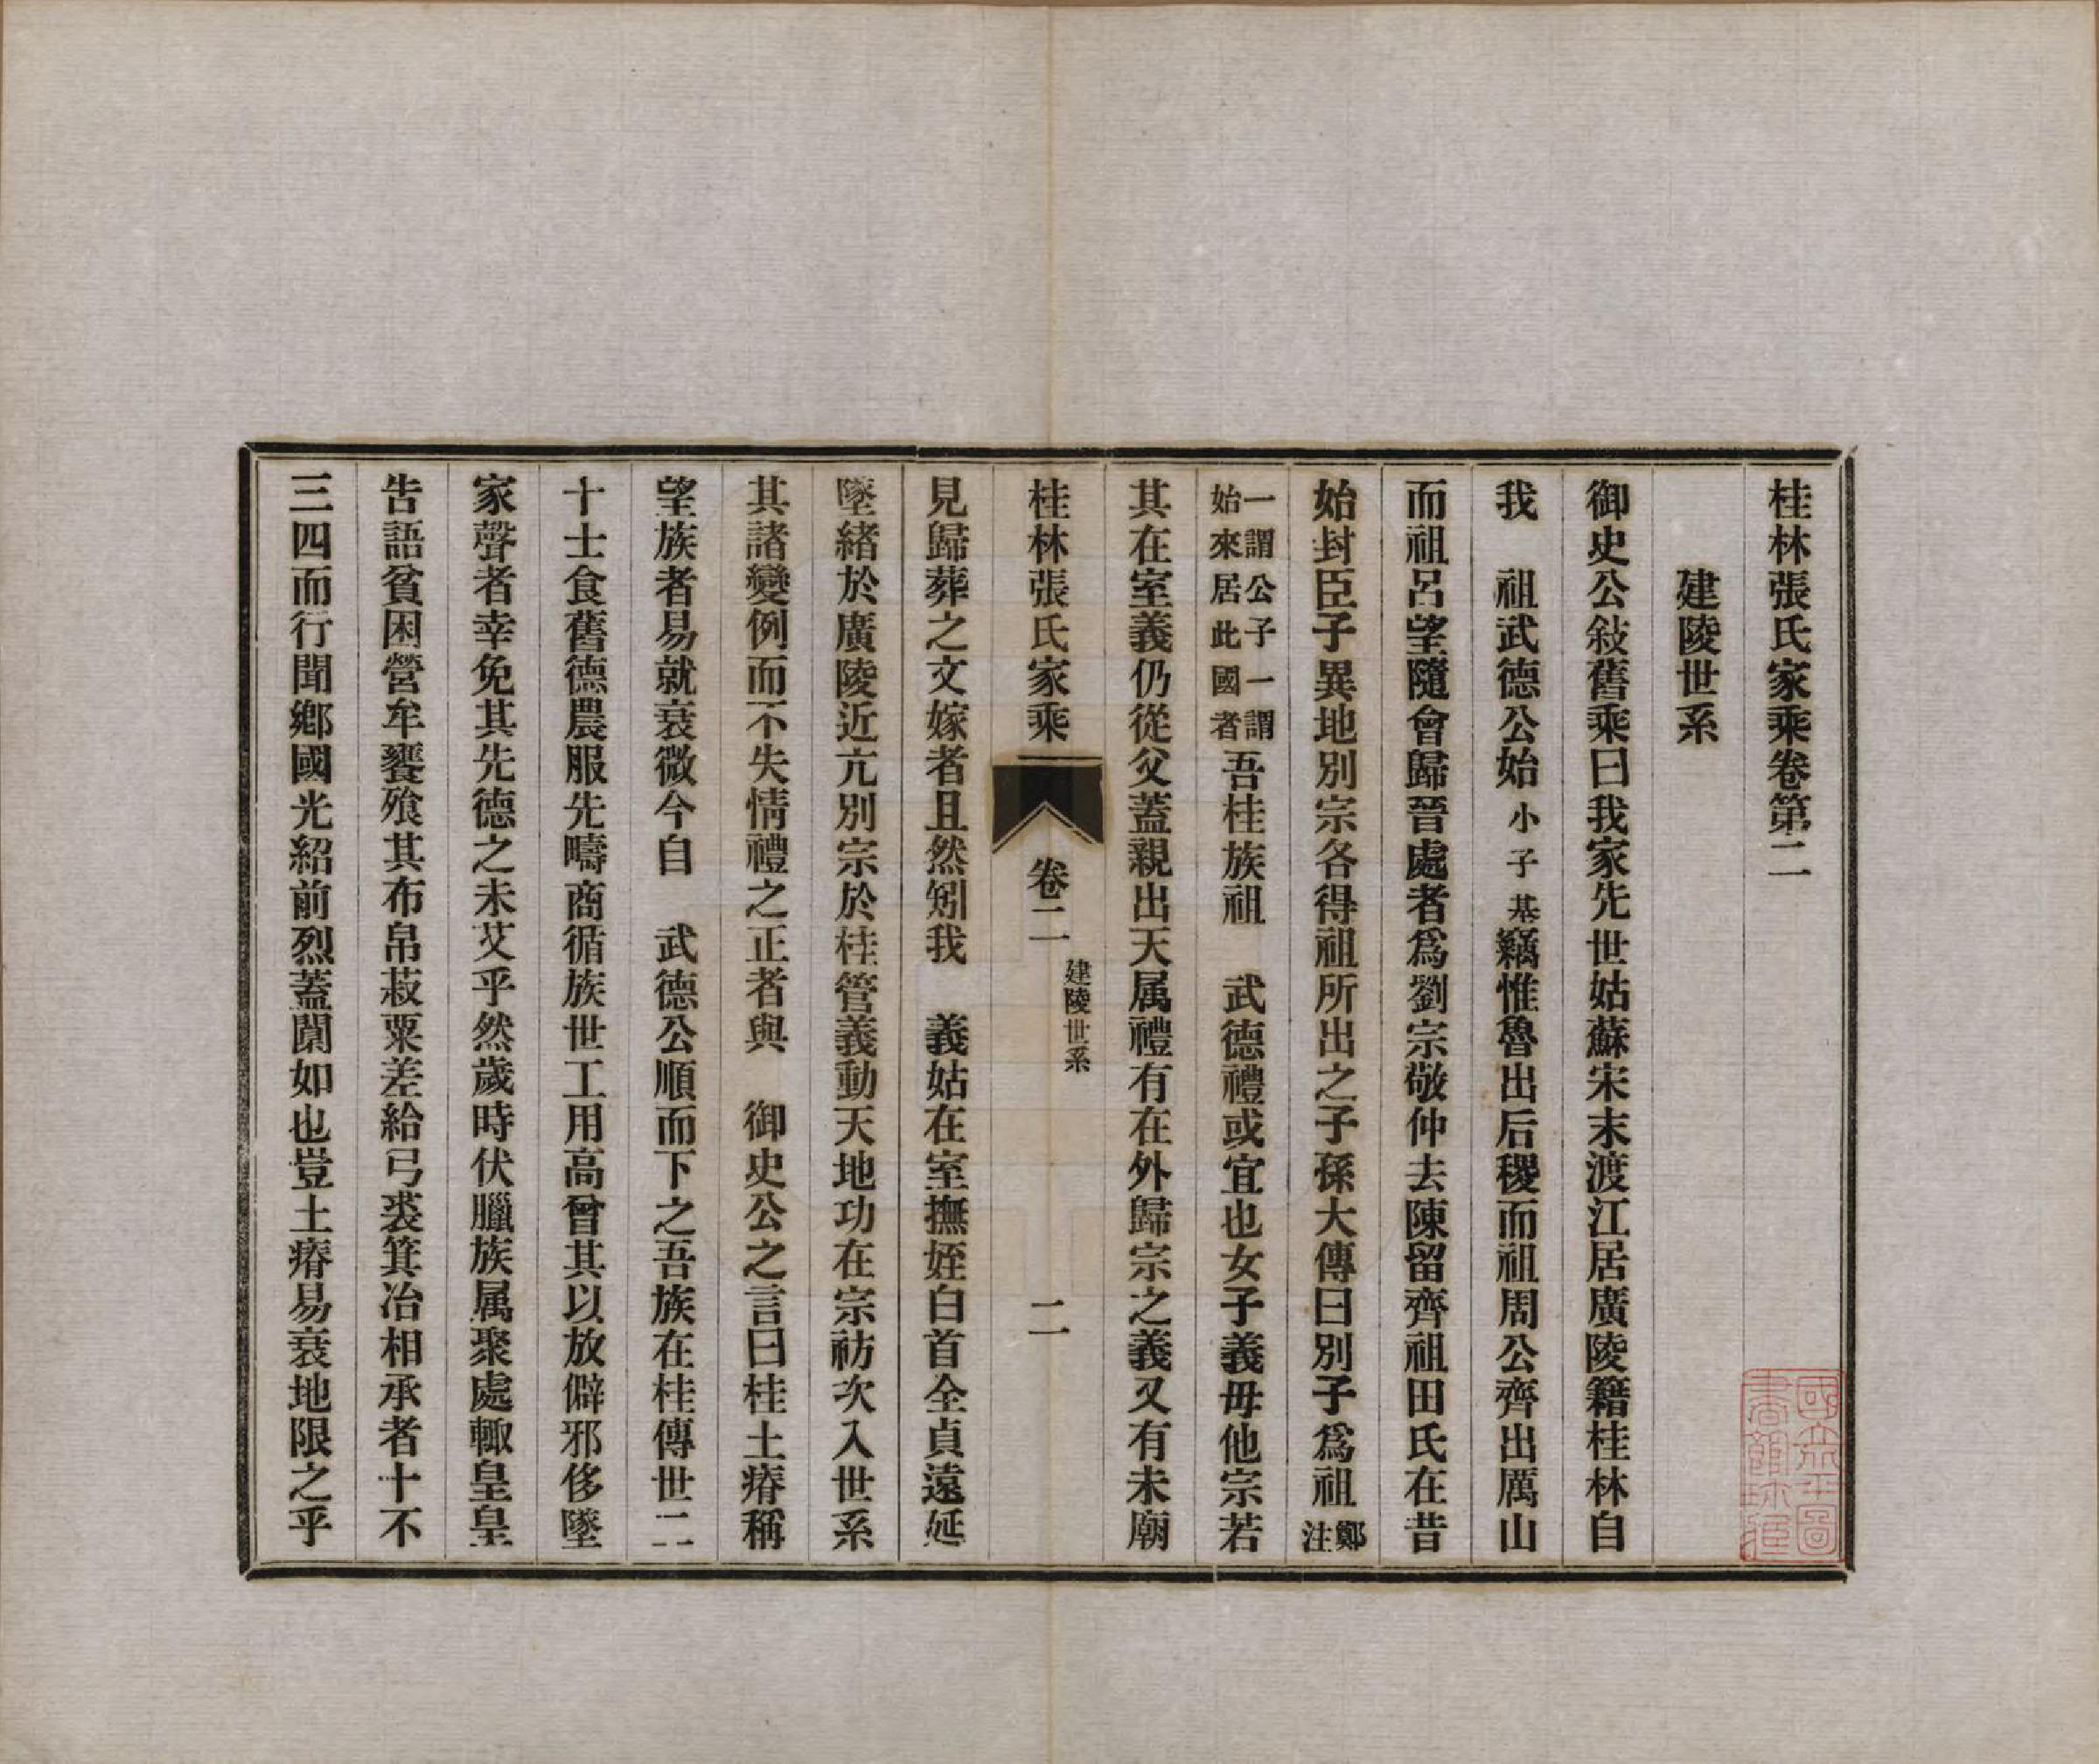 桂林張氏家乘卷第二
建陵世系
御史公敍舊乘曰我家先世姑蘇宋末渡江居廣陵籍桂林自
我　祖武德公始小子基竊惟魯出后稷而祖周公齊出厲山
而祖呂望隨會歸晉處者爲劉宗敬仲去陳留齊祖田氏在昔
始封臣子異地別宗各得祖所出之子孫大傳曰別子爲祖鄭注
一謂公子一謂始來居此國者吾桂族祖　武德禮或宜也女子義毋他宗若
其在室義仍從父蓋親出天属禮有在外歸宗之義又有未廟
桂林張氏家乘　卷二　建陵世系　二
見歸葬之文嫁者且然矧我　義姑在室撫姪白首全貞遠延
墜緒於廣陵近亢別宗於桂管義動天地功在宗祊次入世系
其諸變例而不失情禮之正者與　御史公之言曰桂土瘠稱
望族者易就衰微今自　武德公順而下之吾族在桂傳世二
十士食舊德農服先疇商循族世工用高曾其以放僻邪侈墜
家聲者幸免其先德之未艾乎然歲時伏臘族属聚處輙皇皇
告語貧困營牟饔飱其布帛菽粟差給弓裘箕冶相承者十不
三四而行聞鄉國光紹前烈蓋闃如也豈土瘠易衰地限之乎
國立北平圖書館珍藏